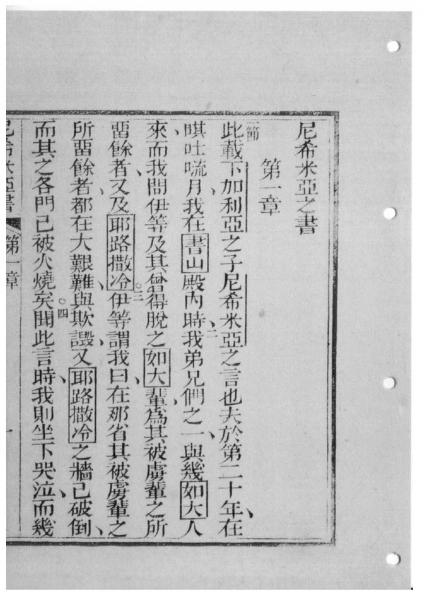 尼希米亞之書
第一章
一節此載下加利亞之子尼希米亞之言也夫於第二十年在
㫬吐嗬月我在書山殿內時二我弟兄們之一與幾如大人
來而我問伊等及其曾得脫之如大輩為其被虜輩之所
畱餘者又及耶路撒冷三伊等謂我曰在那省其被虜輩之
所畱餘者都在大艱難與欺譭又耶路撒冷之牆已破倒
而其之各門已被火燒矣四聞此言時我則坐下哭泣而幾
尼希米亞書 第一章 一